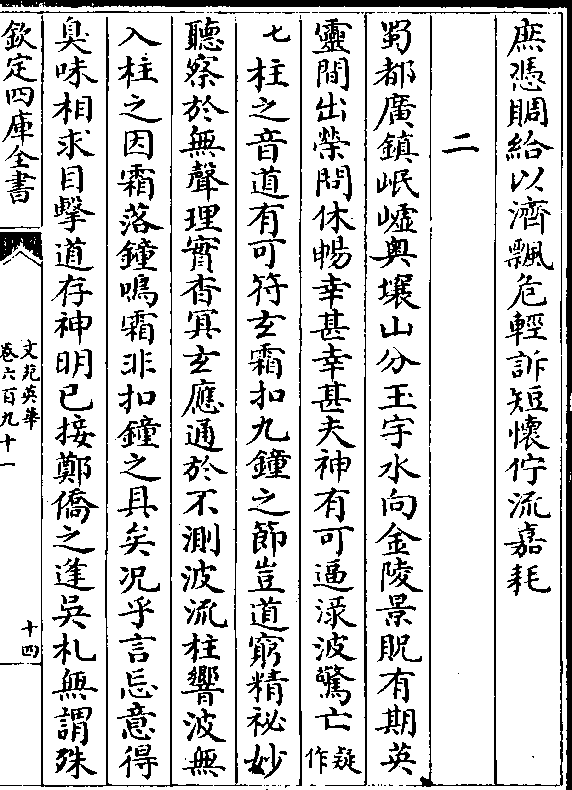 庶憑賙給以濟飄危輕訴短懷佇流嘉耗
二
蜀都廣鎮岷嶟奥壤山分玉宇水向金陵景貺有期英
靈間出榮問休暢幸甚幸甚夫神有可逼渌波驚亡疑作
七柱之音道有可符玄霜扣九鐘之節豈道窮精祕妙
聽察於無聲理實杳冥玄應通於不測波流柱響波無
入柱之因霜落鐘鳴霜非扣鐘之具矣况乎言忘意得
臭味相求目擊道存神明已接鄭僑之逢吳札無謂殊
欽定四庫全書
文苑英華
卷六百九十一
十四